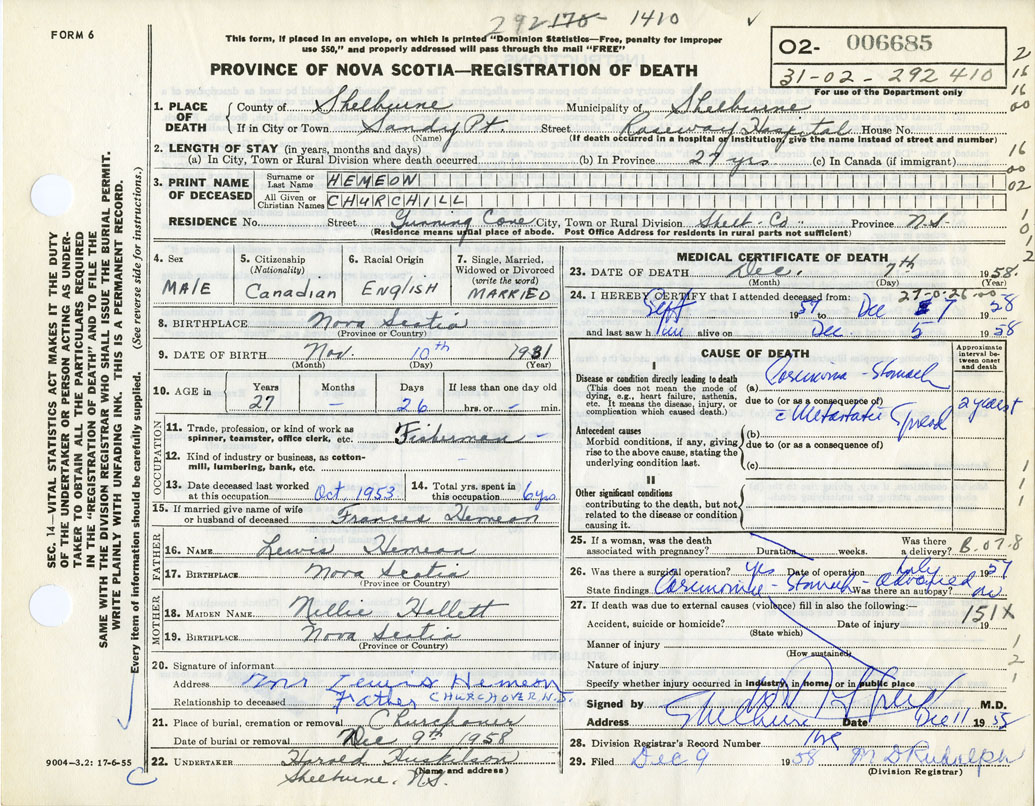 292 170 1410
FORM 6
This form, if placed in an envelope, on which is printed "Dominion Statistics—Free, penalty for improper
use $50," and properly addressed will pass through the mail "FREE"
PROVINCE OF NOVA SCOTIA—REGISTRATION OF DEATH
O2- 006685
31-02-292 410
For use of the Department only
1. PLACE OF DEATH
County of Shelburne Municipality of Shelburne
If in City or Town Sandy Pt. Street Roseway Hospital House No.
(Name) (If death occurred in a hospital or institution, give the name instead of street and number)
2. LENGTH OF STAY (in years, months and days)
(a) In City, Town or Rural Division where death occurred (b) In Province 27 yrs. (c) In Canada (if immigrant)
3. PRINT NAME OF DECEASED
Surname or Last Name HEMEON
All Given or Christian Names CHURCHILL
RESIDENCE No. Street Gunning Cove City, Town or Rural Division Shelb- Co Province N.S.
(Residence means usual place of abode. Post Office Address for residents in rural parts not sufficient)
4. Sex MALE
5. Citizenship (Nationality) Canadian
6. Racial Origin ENGLISH
7. Single, Married, Widowed or Divorced (write the word) MARRIED
8. BIRTHPLACE Nova Scotia
(Province or Country)
9. DATE OF BIRTH Nov. 10th 1931
(Month) (Day) (Year)
10. AGE in Years Months Days If less than one day old
27 - 26 hrs. or - min.
OCCUPATION
11. Trade, profession, or kind of work as
spinner, teamster, office clerk, etc. Fisherman -
12. Kind of industry or business, as cotton-
mill, lumbering, bank, etc. -
13. Date deceased last worked
at this occupation Oct 1953
14. Total yrs. spent in
this occupation 6 yrs.
15. If married give name of wife
or husband of deceased Frances Hemeon
FATHER
16. NAME Lewis Hemeon
17. BIRTHPLACE Nova Scotia
(Province or Country)
MOTHER
18. MAIDEN NAME Nellie Hallett
19. BIRTHPLACE Nova Scotia
(Province or Country)
20. Signature of informant Mr Lewis Hemeon
Address CHURCHOVER N.S.
Relationship to deceased Father
21. Place of burial, cremation or removal Churchover
Date of burial or removal Dec 9th 1958
22. UNDERTAKER Harold Huskilson
(Name and address)
Shelburne, N.S.
9004—3.2: 17-6-55
MEDICAL CERTIFICATE OF DEATH
23. DATE OF DEATH Dec. 7th 1958.
(Month) (Day) (Year)
27-0-26
24. I HEREBY CERTIFY that I attended deceased from:
Sept 1957 to Dec 7 1958
and last saw him alive on Dec. 5 1958
CAUSE OF DEATH
Approximate interval between onset and death
I
Disease or condition directly leading to death
(This does not mean the mode of
dying, e.g., heart failure, asthenia,
etc. It means the disease, injury, or
complication which caused death.)
(a) Carcinoma - Stomach
due to (or as a consequence of)
c Metastatic Spread
Antecedent causes
Morbid conditions, if any, giving
rise to the above cause, stating the
underlying condition last.
(b)
due to (or as a consequence of)
(c)
II
Other significant conditions
contributing to the death, but not
related to the disease or condition
causing it.
25. If a woman, was the death
associated with pregnancy? Duration weeks. Was there a delivery? B.07.8
26. Was there a surgical operation? yes Date of operation July 1957
State findings Carcinoma - Stomach - advanced Was there an autopsy? no
27. If death was due to external causes (violence) fill in also the following:—
151X
Accident, suicide or homicide? Date of injury 19
(State which)
Manner of injury
(How sustained)
Nature of injury
Specify whether injury occurred in industry, in home, or in public place
Signed by M.D.
Address Shelburne Date Dec 11 19
28. Division Registrar's Record Number
29. Filed Dec 9 1958 M D Rudolph
(Division Registrar)
SEC. 14—VITAL STATISTICS ACT MAKES IT THE DUTY
OF THE UNDERTAKER OR PERSON ACTING AS UNDER-
TAKER TO OBTAIN ALL THE PARTICULARS REQUIRED
IN THE "REGISTRATION OF DEATH" AND TO FILE THE
SAME WITH THE DIVISION REGISTRAR WHO SHALL ISSUE THE BURIAL PERMIT.
WRITE PLAINLY WITH UNFADING INK. THIS IS A PERMANENT RECORD.
Every item of information should be carefully supplied. (See reverse side for instructions.)
2
16
16
00
16
00
02
1
0
1
2
1
1
1
1
2
1